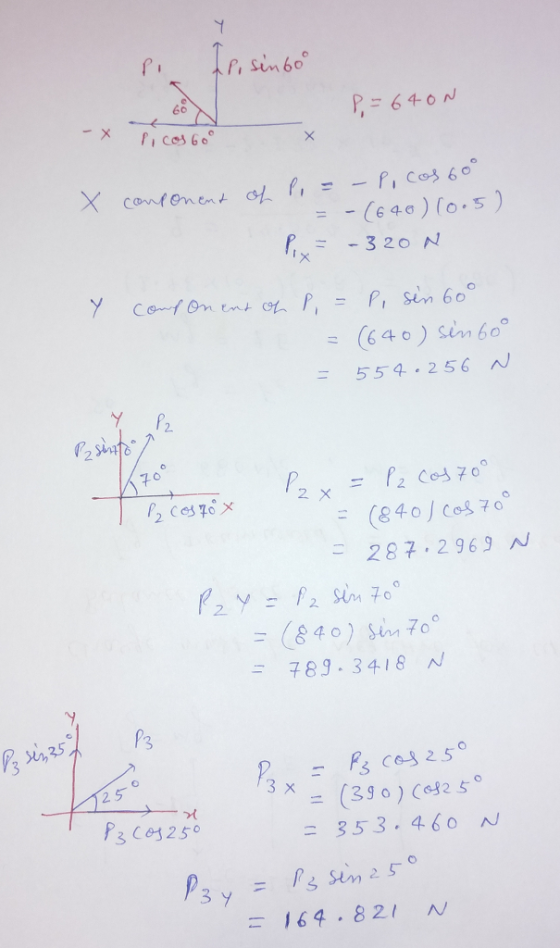 Y
P₁
P₁ sin60°
60°
P₁ = 640 N
- X
P₁ cos60°
X
X component of P₁ = - P₁ cos60°
= -(640)(0.5)
P₁ₓ = -320 N
Y component of P₁ = P₁ sin60°
= (640) sin60°
= 554.256 N
Y
P₂
P₂ sin70°
70°
P₂ cos70°
X
P₂ₓ = P₂ cos70°
= (840) cos70°
= 287.2969 N
P₂ Y = P₂ sin70°
= (840) sin70°
= 789.3418 N
Y
P₃ sin25°
P₃
25°
x
P₃ cos25°
P₃ₓ = P₃ cos25°
= (390) cos25°
= 353.460 N
P₃ Y = P₃ sin25°
= 164.821 N